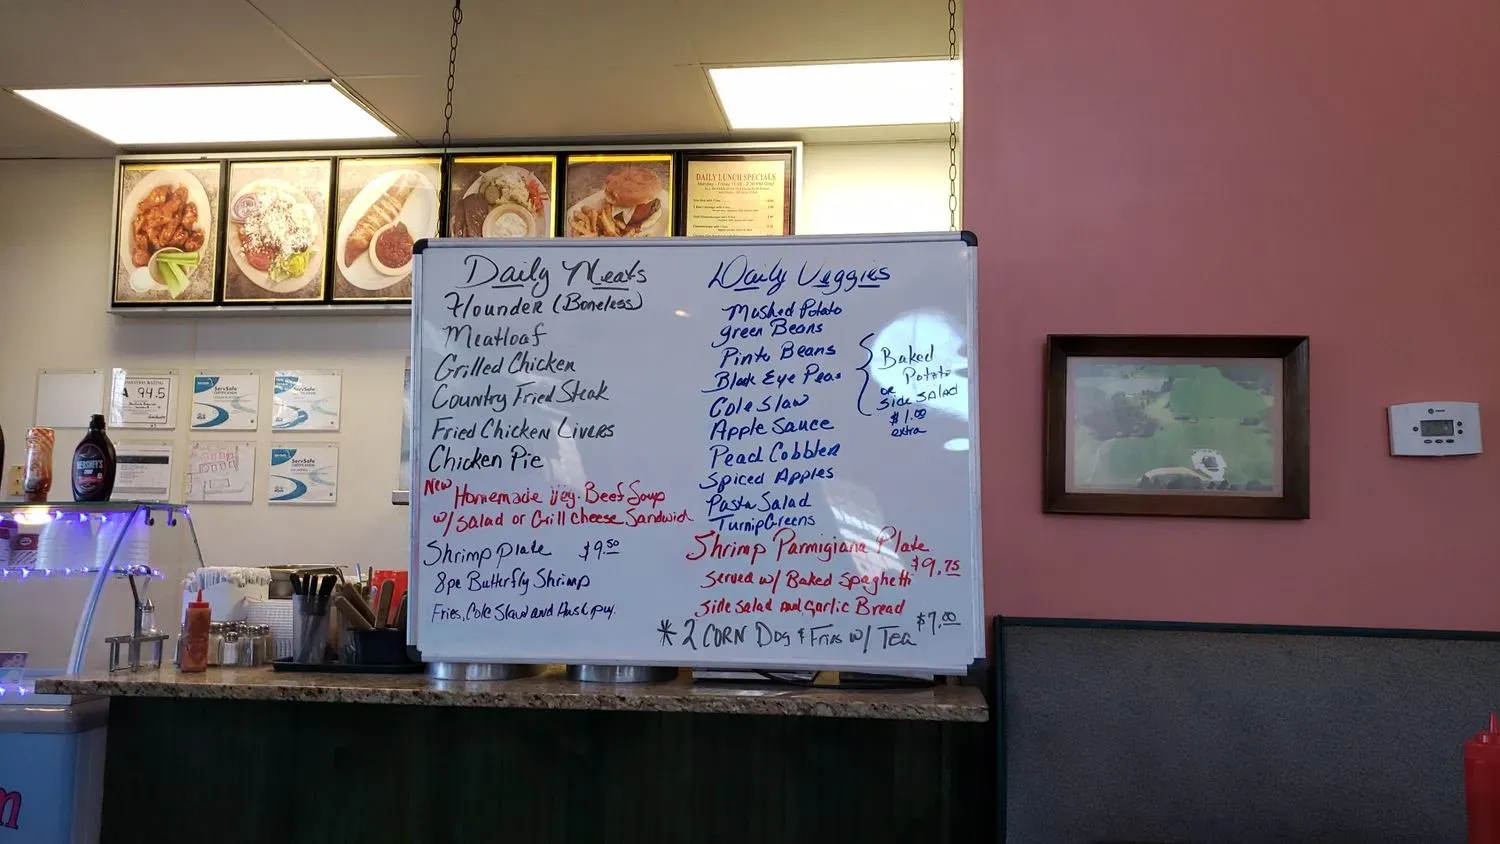 DAILY LUNCH SPECIALS
Daily Meats
Flounder (Boneless)
Meatloaf
Grilled Chicken
Country Fried Steak
Fried Chicken Livers
Chicken Pie
New Homemade Veg. Beef Soup
w/ Salad or Grill Cheese Sandwich
Shrimp Plate $9.50
8pc Butterfly Shrimp
Fries, Cole Slaw and Hushpuy.
Daily Veggies
Mashed Potato
green Beans
Pinto Beans
Black Eye Peas
Cole Slaw
Apple Sauce
Peach Cobbler
Spiced Apples
Pasta Salad
Turnip Greens
Baked
Potato
or
Side Salad
$1.00
extra
Shrimp Parmigiana Plate
$9.75
Served w/ Baked Spaghetti
Side Salad and Garlic Bread
* 2 CORN Dog & Fries w/ Tea $7.00
A 94.5
ServSafe
ServSafe
ServSafe
HERSHEY'S